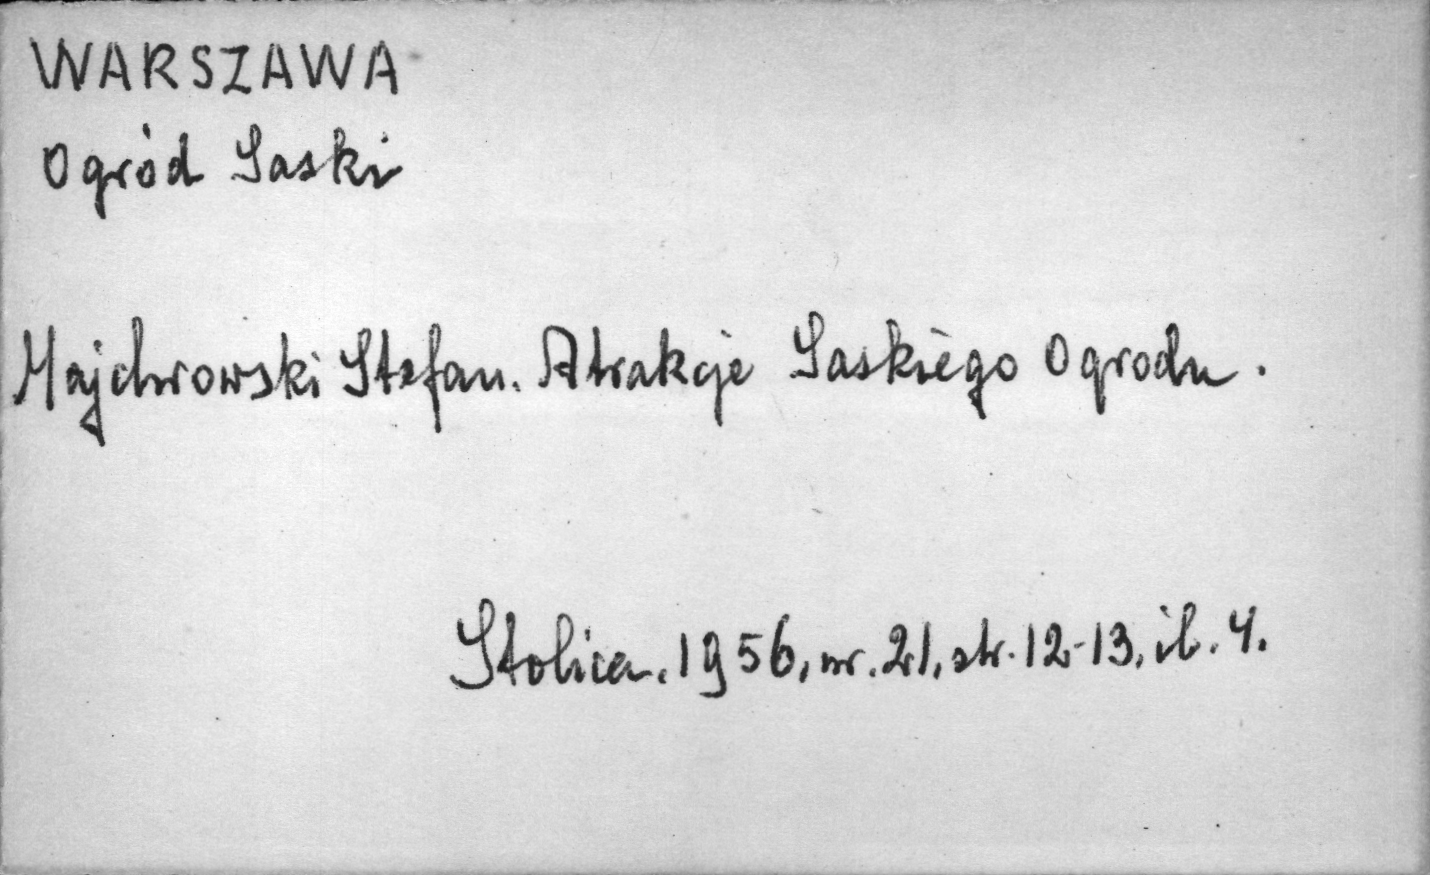 WARSZAWA
Ogród Saski
Majchrowski Stefan. Atrakcje Saskiego Ogrodu.
Stolica. 1956, nr. 21, str. 12-13, il. 4.